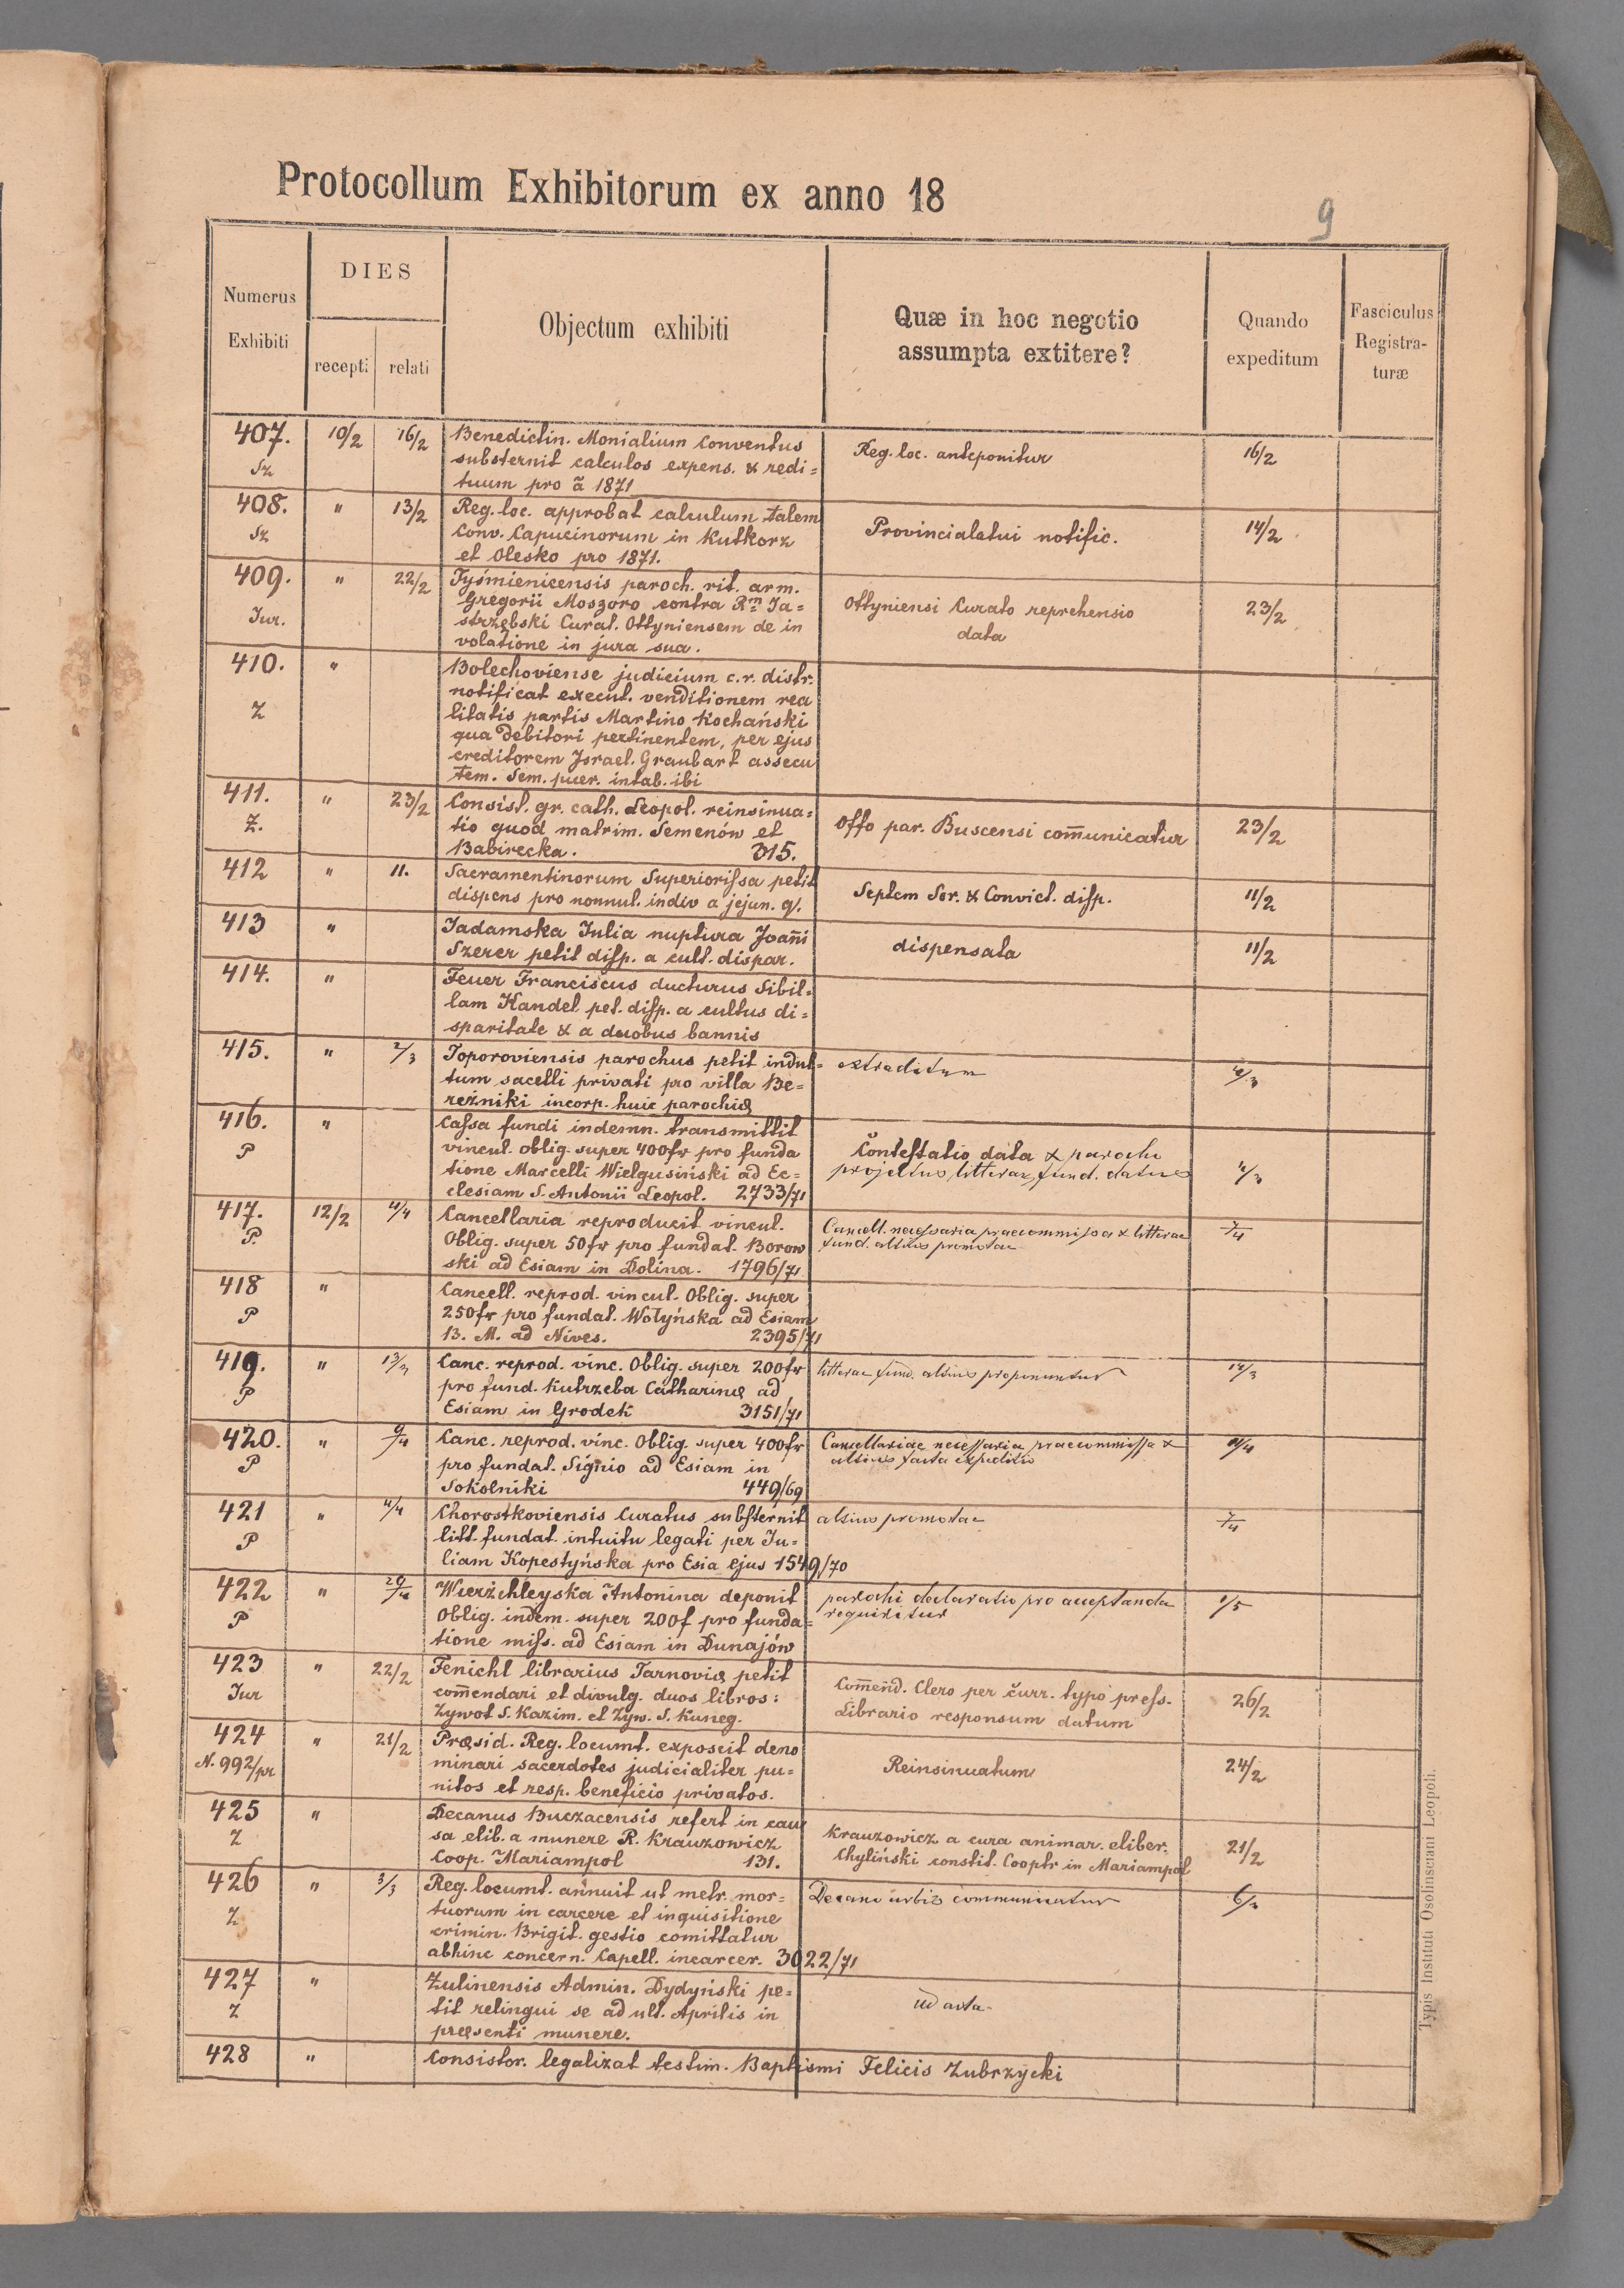 Protocollum Exhibitorum ex anno 18
9
Numerus Exhibiti
DIES
recepti
relati
Objectum exhibiti
Quæ in hoc negotio assumpta extitere?
Quando expeditum
Fasciculus Registra-turæ
407. 10/2 16/2 Benedictin. Monialium Conventus
Sz substernit calculos expens. & redi= Reg. loc. anteponitur 16/2
tuum pro ã 1871
408. " 13/2 Reg. loc. approbat calculum talem
Sz Conv. Capucinorum in Kutkorz Provincialatui notific. 14/2
et Olesko pro 1871.
409. " 22/2 Tyśmienicensis paroch. rit. arm.
Gregorii Moszoro contra Rm Ja= Ottyniensi Curato reprehensio 23/2
Jur. strzębski Curat. Ottyniensem de in data
volatione in jura sua.
410. " Bolechoviense judicium c.r. distr.
notificat execut. venditionem rea
Z litatis partis Martino Kochański
qua debitori pertinentem, per ejus
creditorem Israel. Graubart assecu
tem. Sem. puer. intab. ibi
411. " 23/2 Consist. gr. cath. Leopol. reinsinua=
Z. tio quod matrim. Semenów et Offo par. Buscensi com̄unicatur 23/2
Babirecka. 315.
412 " 11. Sacramentinorum Superiorissa petit
dispens pro nonnul. indiv a jejun. q. Septem Sor. & Convict. disp. 11/2
413 " Jadamska Julia nuptura Joan̄i
Szerer petit disp. a cult. dispar. dispensata 11/2
414. " Feuer Franciscus ducturus Sibil=
lam Kandel pet. disp. a cultus di=
sparitate & a duobus bannis
415. " 2/3 Toporoviensis parochus petit indul= extraditum 4/3
tum sacelli privati pro villa Be=
reżniki incorp. huic parochię
416. " Cassa fundi indemn. transmittit
P vincul. oblig. super 400fr pro funda Contestatio data & parocho
tione Marcelli Wielgusiński ad Ec= projectus litterar. fund. datus 4/3
clesiam S. Antonii Leopol. 2733/71
417. 12/2 4/4 Cancellaria reproducit vincul.
P. Oblig. super 50fr pro fundat. Borow Cancell. necessaria praecommissa & litterae 7/4
ski ad Esiam in Dolina. 1796/71 fund. altius promotae
418 " Cancell. reprod. vincul. Oblig. super
P 250fr pro fundat. Wołyńska ad Esiam
B. M. ad Nives. 2395/71
419. " 13/3 Canc. reprod. vinc. Oblig. super 200fr litterae fund. altius proponuntur 14/3
P pro fund. Kutrzeba Catharinę ad
Esiam in Grodek 3151/71
420. " 9/4 Canc. reprod. vinc. Oblig. super 400fr Cancellariae necessaria praecommissa &
P pro fundat. Signio ad Esiam in altius facta expeditio
Sokolniki 449/69
421 " 4/4 Chorostkoviensis Curatus substernit altius promotae 7/4
P litt. fundat. intuitu legati per Ju=
liam Kopestyńska pro Esia ejus 1549/70
422 " Wierzchleyska Antonina deponit parochi declaratio pro acceptanda 1/5
P Oblig. indem. super 200f pro funda= requiritur
tione miss. ad Esiam in Dunajów
423 " 22/2 Fenichl librarius Tarnovię petit
Jur com̄endari et divulg. duos libros: Com̄end. Clero per curr. typo press. 26/2
Żywot S. Kazim. et Żyw. S. Kuneg. Librario responsum datum
424 " 21/2 Pręsid. Reg. locumt. exposcit deno
N. 992/pr minari sacerdotes judicialiter pu= Reinsinuatum 24/2
nitos et resp. beneficio privatos.
425 " Decanus Buczacensis refert in cau
Z sa elib. a munere R. Krauzowicz Krauzowicz a cura animar. eliber. 21/2
Coop. Mariampol 131. Chyliński constit. Cooptr in Mariampol
426 " 3/3 Reg. locumt. annuit ut metr. mor= Decano urbis communicatur 6/3
Z tuorum in carcere et inquisitione
crimin. Brigit. gestio comittatur
abhinc concern. Capell. incarcer. 3022/71
427 " Żulinensis Admin. Dydyński pe=
Z tit relinqui se ad ult. Aprilis in ad acta
pręsenti munere.
428 " Consistor. legalizat testim. Baptismi Felicis Zubrzycki
Typis Instituti Ossolinsciani Leopoli.